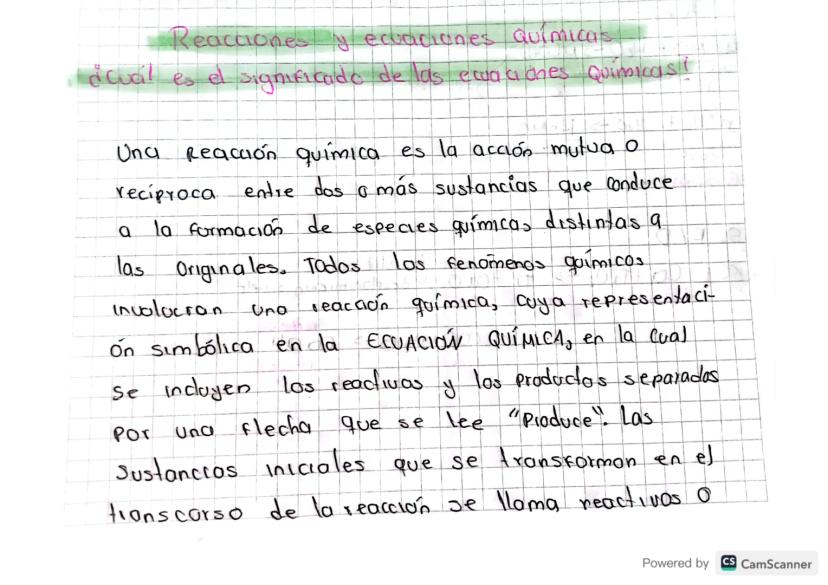 Reacciones y ecuaciones químicas
¿Cuál es el significado de las ecuaciones químicas?
Una Reacción química es la acción mutua o
recíproca entre dos o más sustancias que conduce
a la formación de especies químicas distintas a
las Originales. Todos los fenómenos químicos
involucran una reacción química, cuya representaci-
ón simbólica en la ECUACIÓN QUÍMICA, en la cual
se incluyen los reactivos y los productos separados
por una flecha que se lee "Produce". Las
Sustancias iniciales que se transforman en el
transcurso de la reacción se llama reactivos o
Powered by CS CamScanner